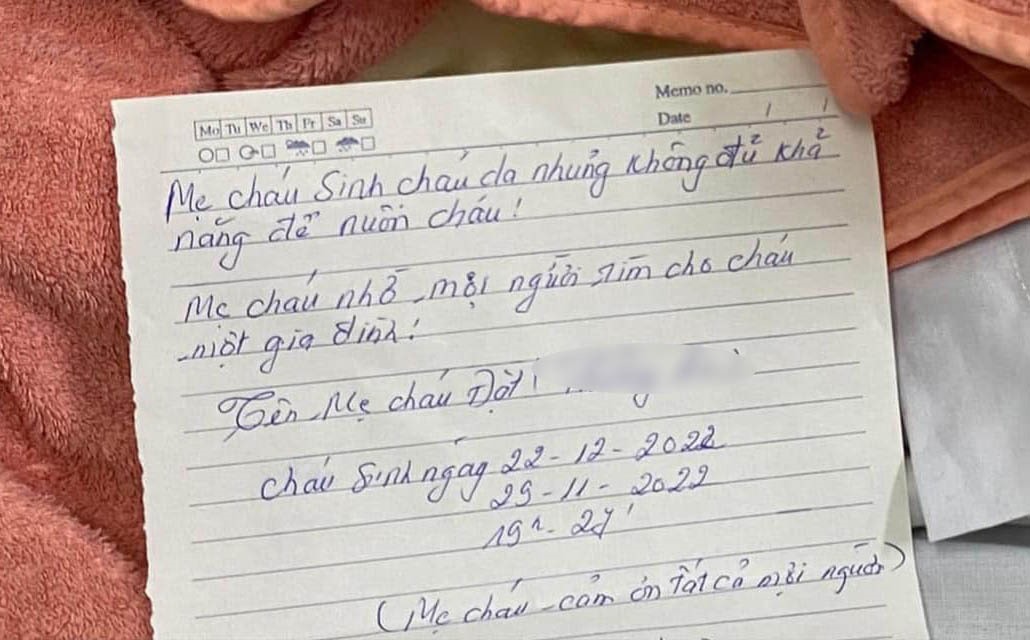 Memo no.
Mo Tu We Th Fr Sa Su
Date / /
Mẹ cháu Sinh cháu da nhưng không đủ khả
năng để nuôn cháu!
Mẹ cháu nhờ mọi người tìm cho cháu
một gia đình!
Tên Mẹ cháu Đặt!
cháu Sinh ngày 22-12-2022
29-11-2022
19h-27'
(Mẹ cháu cảm ơn tất cả mọi người)